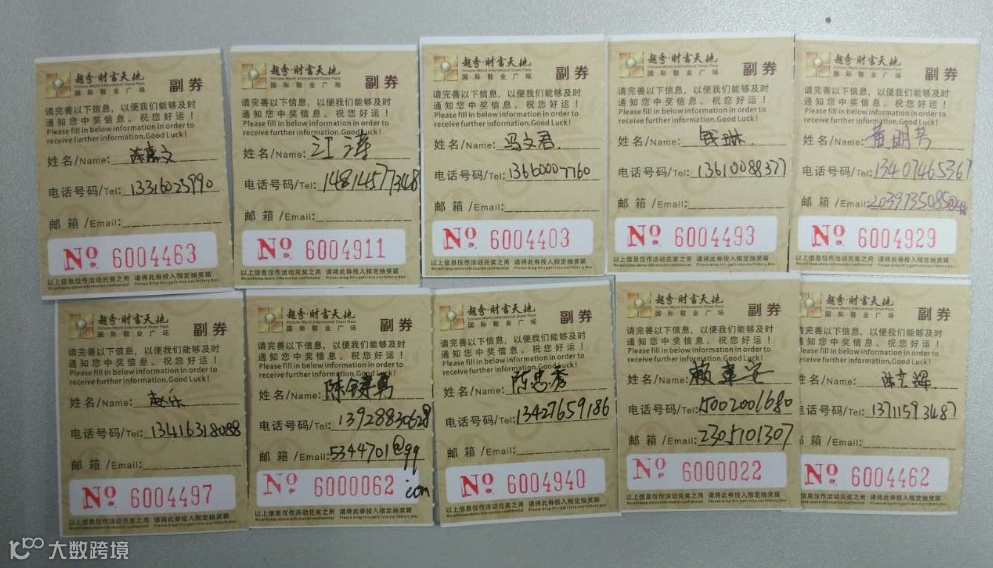 越秀·财富天地
国际鞋业广场
副券
请完善以下信息，以便我们能够及时
通知您中奖信息，祝您好运！
Please fill in below information in order to
receive further information.Good Luck!
姓名/Name: 陈嘉文
电话号码/Tel: 13316025990
邮箱/Email:
No 6004463
以上信息仅作活动兑奖之用 请将此券投入指定抽奖箱
越秀·财富天地
国际鞋业广场
副券
请完善以下信息，以便我们能够及时
通知您中奖信息，祝您好运！
Please fill in below information in order to
receive further information.Good Luck!
姓名/Name: 江涛
电话号码/Tel: 14814577348
邮箱/Email:
No 6004911
以上信息仅作活动兑奖之用 请将此券投入指定抽奖箱
越秀·财富天地
国际鞋业广场
副券
请完善以下信息，以便我们能够及时
通知您中奖信息，祝您好运！
Please fill in below information in order to
receive further information.Good Luck!
姓名/Name: 冯文君.
电话号码/Tel: 13660007760
邮箱/Email:
No 6004403
以上信息仅作活动兑奖之用 请将此券投入指定抽奖箱
越秀·财富天地
国际鞋业广场
副券
请完善以下信息，以便我们能够及时
通知您中奖信息，祝您好运！
Please fill in below information in order to
receive further information.Good Luck!
姓名/Name: 钱琳
电话号码/Tel: 13610088377
邮箱/Email:
No 6004493
以上信息仅作活动兑奖之用 请将此券投入指定抽奖箱
越秀·财富天地
国际鞋业广场
副券
请完善以下信息，以便我们能够及时
通知您中奖信息，祝您好运！
Please fill in below information in order to
receive further information.Good Luck!
姓名/Name: 黄明芳
电话号码/Tel: 13407465367
邮箱/Email:
No 6004929
以上信息仅作活动兑奖之用 请将此券投入指定抽奖箱
越秀·财富天地
国际鞋业广场
副券
请完善以下信息，以便我们能够及时
通知您中奖信息，祝您好运！
Please fill in below information in order to
receive further information.Good Luck!
姓名/Name: 赵乐
电话号码/Tel: 13416318088
邮箱/Email:
No 6004497
以上信息仅作活动兑奖之用 请将此券投入指定抽奖箱
越秀·财富天地
国际鞋业广场
副券
请完善以下信息，以便我们能够及时
通知您中奖信息，祝您好运！
Please fill in below information in order to
receive further information.Good Luck!
姓名/Name:
电话号码/Tel: 13928830628
邮箱/Email: 5344701@qq
.com
No 6000062
以上信息仅作活动兑奖之用 请将此券投入指定抽奖箱
越秀·财富天地
国际鞋业广场
副券
请完善以下信息，以便我们能够及时
通知您中奖信息，祝您好运！
Please fill in below information in order to
receive further information.Good Luck!
姓名/Name: 陈忠秀
电话号码/Tel: 13427659186
邮箱/Email:
No 6004940
以上信息仅作活动兑奖之用 请将此券投入指定抽奖箱
越秀·财富天地
国际鞋业广场
副券
请完善以下信息，以便我们能够及时
通知您中奖信息，祝您好运！
Please fill in below information in order to
receive further information.Good Luck!
姓名/Name:
电话号码/Tel: 15002001680
邮箱/Email: 2305101307
No 6000022
以上信息仅作活动兑奖之用 请将此券投入指定抽奖箱
越秀·财富天地
国际鞋业广场
副券
请完善以下信息，以便我们能够及时
通知您中奖信息，祝您好运！
Please fill in below information in order to
receive further information.Good Luck!
姓名/Name:
电话号码/Tel: 13711593487
邮箱/Email:
No 6004462
以上信息仅作活动兑奖之用 请将此券投入指定抽奖箱
大数跨境